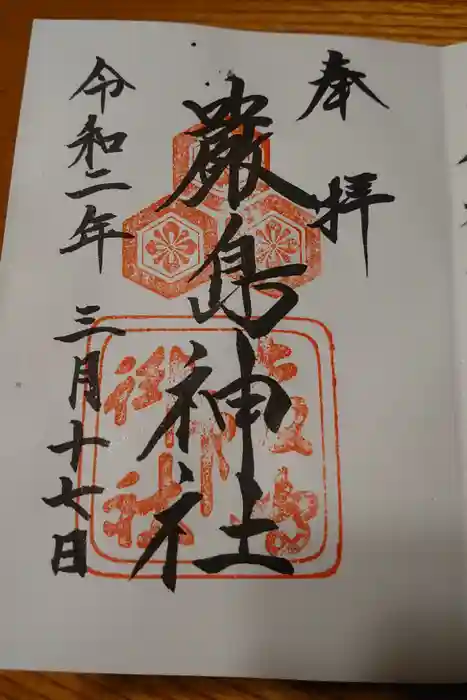 奉拝
厳島神社
令和二年三月十七日